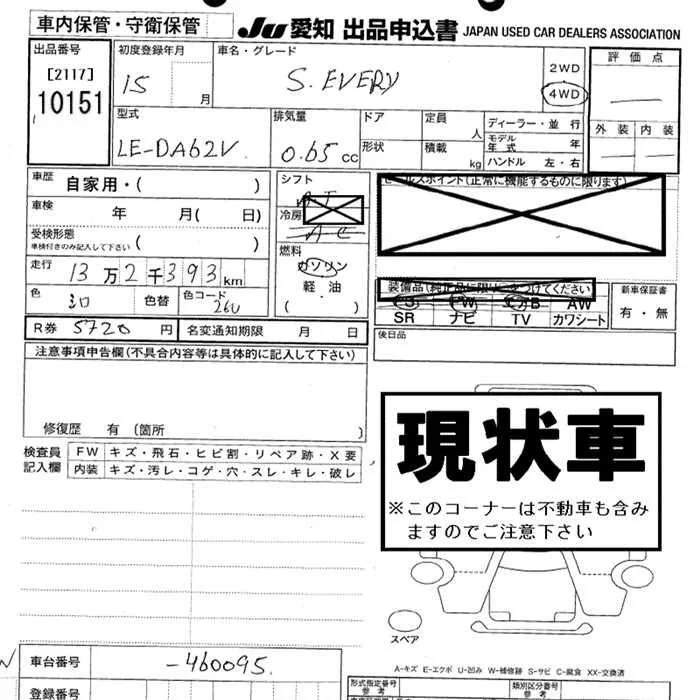 車内保管・守衛保管
JU 愛知 出品申込書 JAPAN USED CAR DEALERS ASSOCIATION
出品番号
[2117]
10151
初度登録年月
15 月
車名・グレード
S. EVERY
2WD
4WD
評価点
外装 内装
型式
LE-DA62V
排気量
0.65 cc
ドア
形状
定員 人
積載 kg
ディーラー・並行
モデル年式 年
ハンドル 左・右
車歴 自家用・( )
車検 年 月( 日)
受検形態
車検付きのみ記入して下さい ( )
走行 13万2千393km
色 シロ 色替 色コード 26U
R券 5720円 名変通知期限 月 日
シフト
AT
冷房
AC
燃料
ガソリン
軽・油
( )
セールスポイント(正常に機能するものに限ります)
装備品(純正品に限り○をつけてください)
PS PW エアB AW
SR ナビ TV カワシート
新車保証書
有・無
後日品
注意事項申告欄(不具合内容等は具体的に記入して下さい)
修復歴 有 (箇所 )
検査員記入欄
FW キズ・飛石・ヒビ割・リペア跡・X要
内装 キズ・汚レ・コゲ・穴・スレ・キレ・破レ
現状車
※このコーナーは不動車も含み
ますのでご注意下さい
スペア
A-キズ E-エクボ U-凹み W-補修跡 S-サビ C-腐食 XX-交換済
車台番号 -460095.
登録番号
形式指定番号
参考
類別区分番号
参考